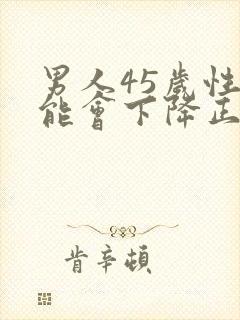 男人45歲性
能會下降正
肯辛頓